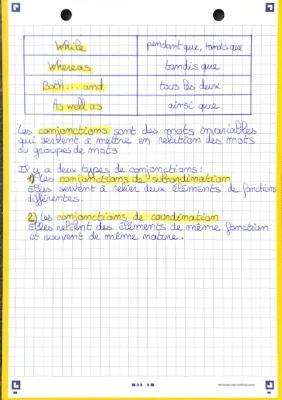 While pendant que, tandis que
Whereas tandis que
Both... and tous les deux
As well as ainsi que
Les conjonctions sont des mots invariables
qui servent à mettre en relation des mots
ou groupes de mots
Il y a deux types de conjonctions :
1) Les conjonctions de subordination
Elles servent à relier deux éléments de fonctions
différentes.
2) Les conjonctions de coordination
Elles relient des éléments de même fonction
et souvent de même nature.